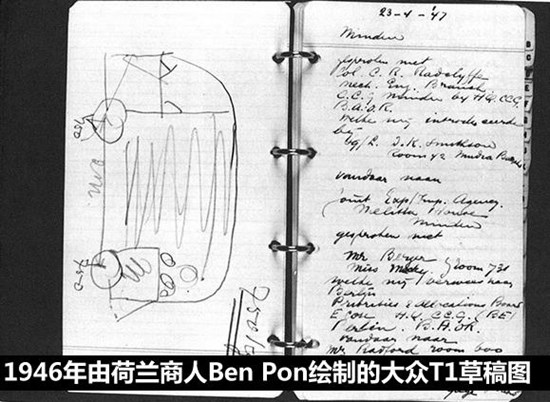 750
750
750 kg
23-4-'47
Minden
gesproken met
Col. C. R. Radclyffe
Mech. Eng. Branch
C.C.G. Minden by H.Q. CCG.
B.A.O.R.
welke mij introduceerde
bij
Room
vandaar naar
Joint Exp/Imp. Agency.
Melitta House
Minden
gesproken met
Mr Berger
Miss room 731
welke mij verwees naar
Berlijn
Priorities & Allocations Board
Econ H.Q. CCG. (BE)
Berlin. B.A.O.R.
vandaar naar
Mr. Radford room 600
1946年由荷兰商人Ben Pon绘制的大众T1草稿图